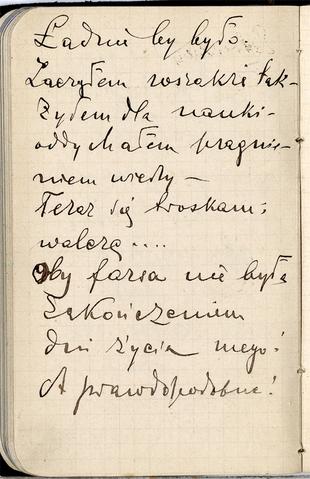 Ładnie by było.
Zacząłem wszakże tak –
Żyłem dla nauki –
oddychałem pragnie-
niem wiedzy –
Teraz się troskami
walczę ....
By farsa nie była
Zakończeniem
dni życia mego!
A prawdopodobne!